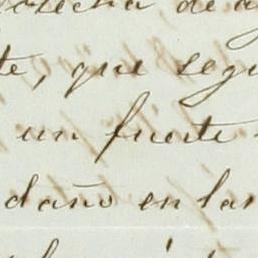 cosecha de a
te, que segu
un fuerte
daño en las